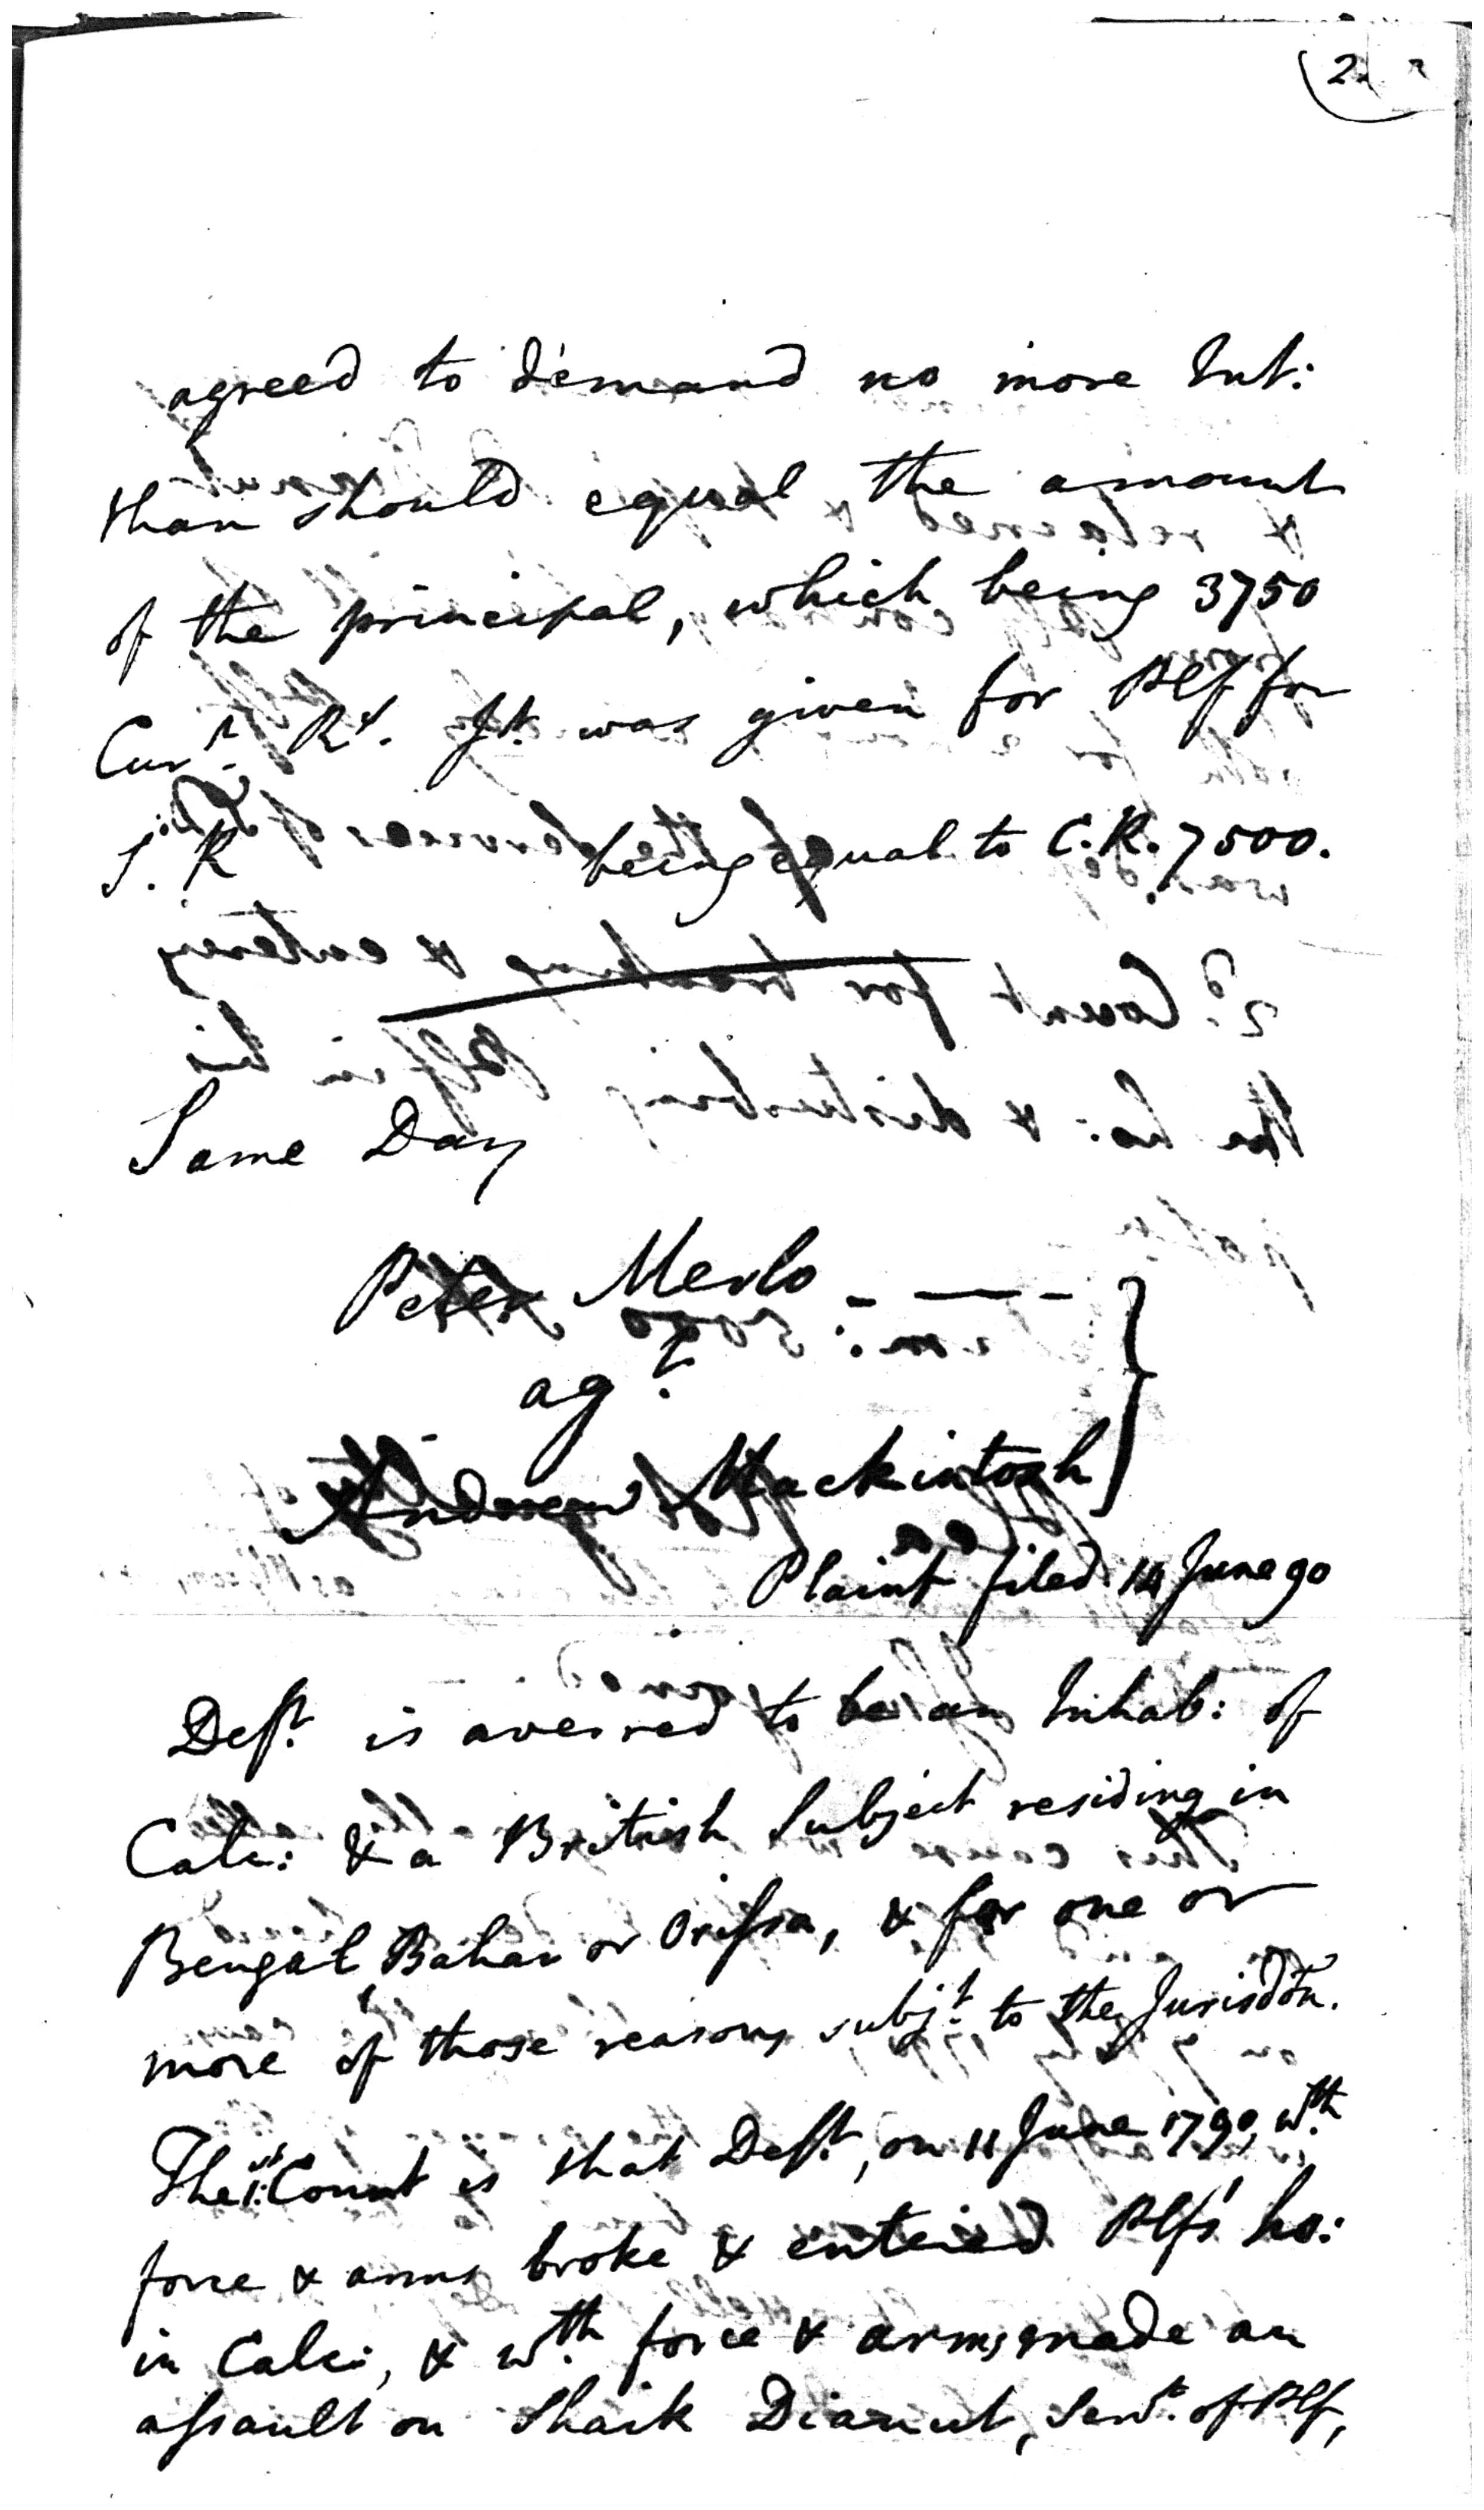 2
agreed to demand no more Int:
than should equal the amount
of the principal, which being 3750
Curt. Rs. Jt. was given for Plf for
S. R being equal to C.R. 7500.
Same Day
Peter Merlo
agt.
Andrew Mackintosh
Plaint filed 14 June 90
Deft. is averred to be an Inhab: of
Calc: & a British Subject residing in
Bengal, Bahar or Orissa, & for one or
more of those reasons subjt. to the Jurisdon.
The 1st. Count is that Deft., on 11 June 1790, wth.
force & arms broke & entered Plf's ho:
in Calc:, & wth. force & arms made an
assault on Shaik Diarut, Servt. of Plf,